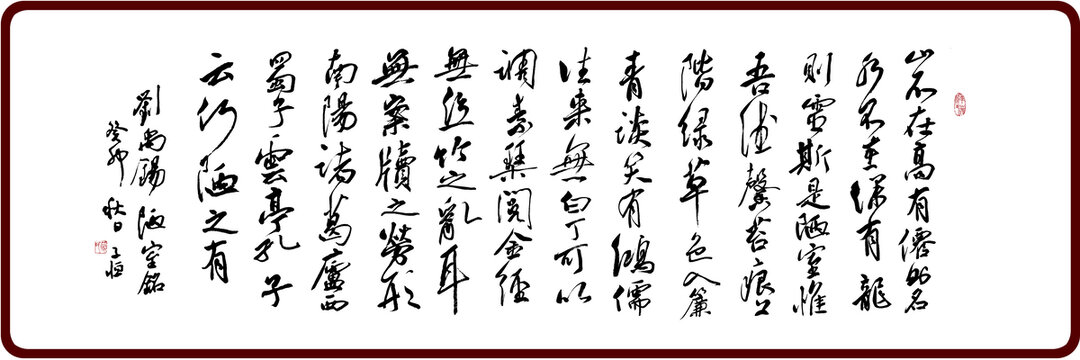 山不在高有僊則名
水不在深有龍
則靈斯是陋室惟
吾德馨苔痕上
階緑草色入簾
青談笑有鴻儒
往来無白丁可以
調素琴閱金經
無絲竹之亂耳
無案牘之勞形
南陽諸葛廬西
蜀子雲亭孔子
云何陋之有
劉禹錫陋室銘
癸卯秋日